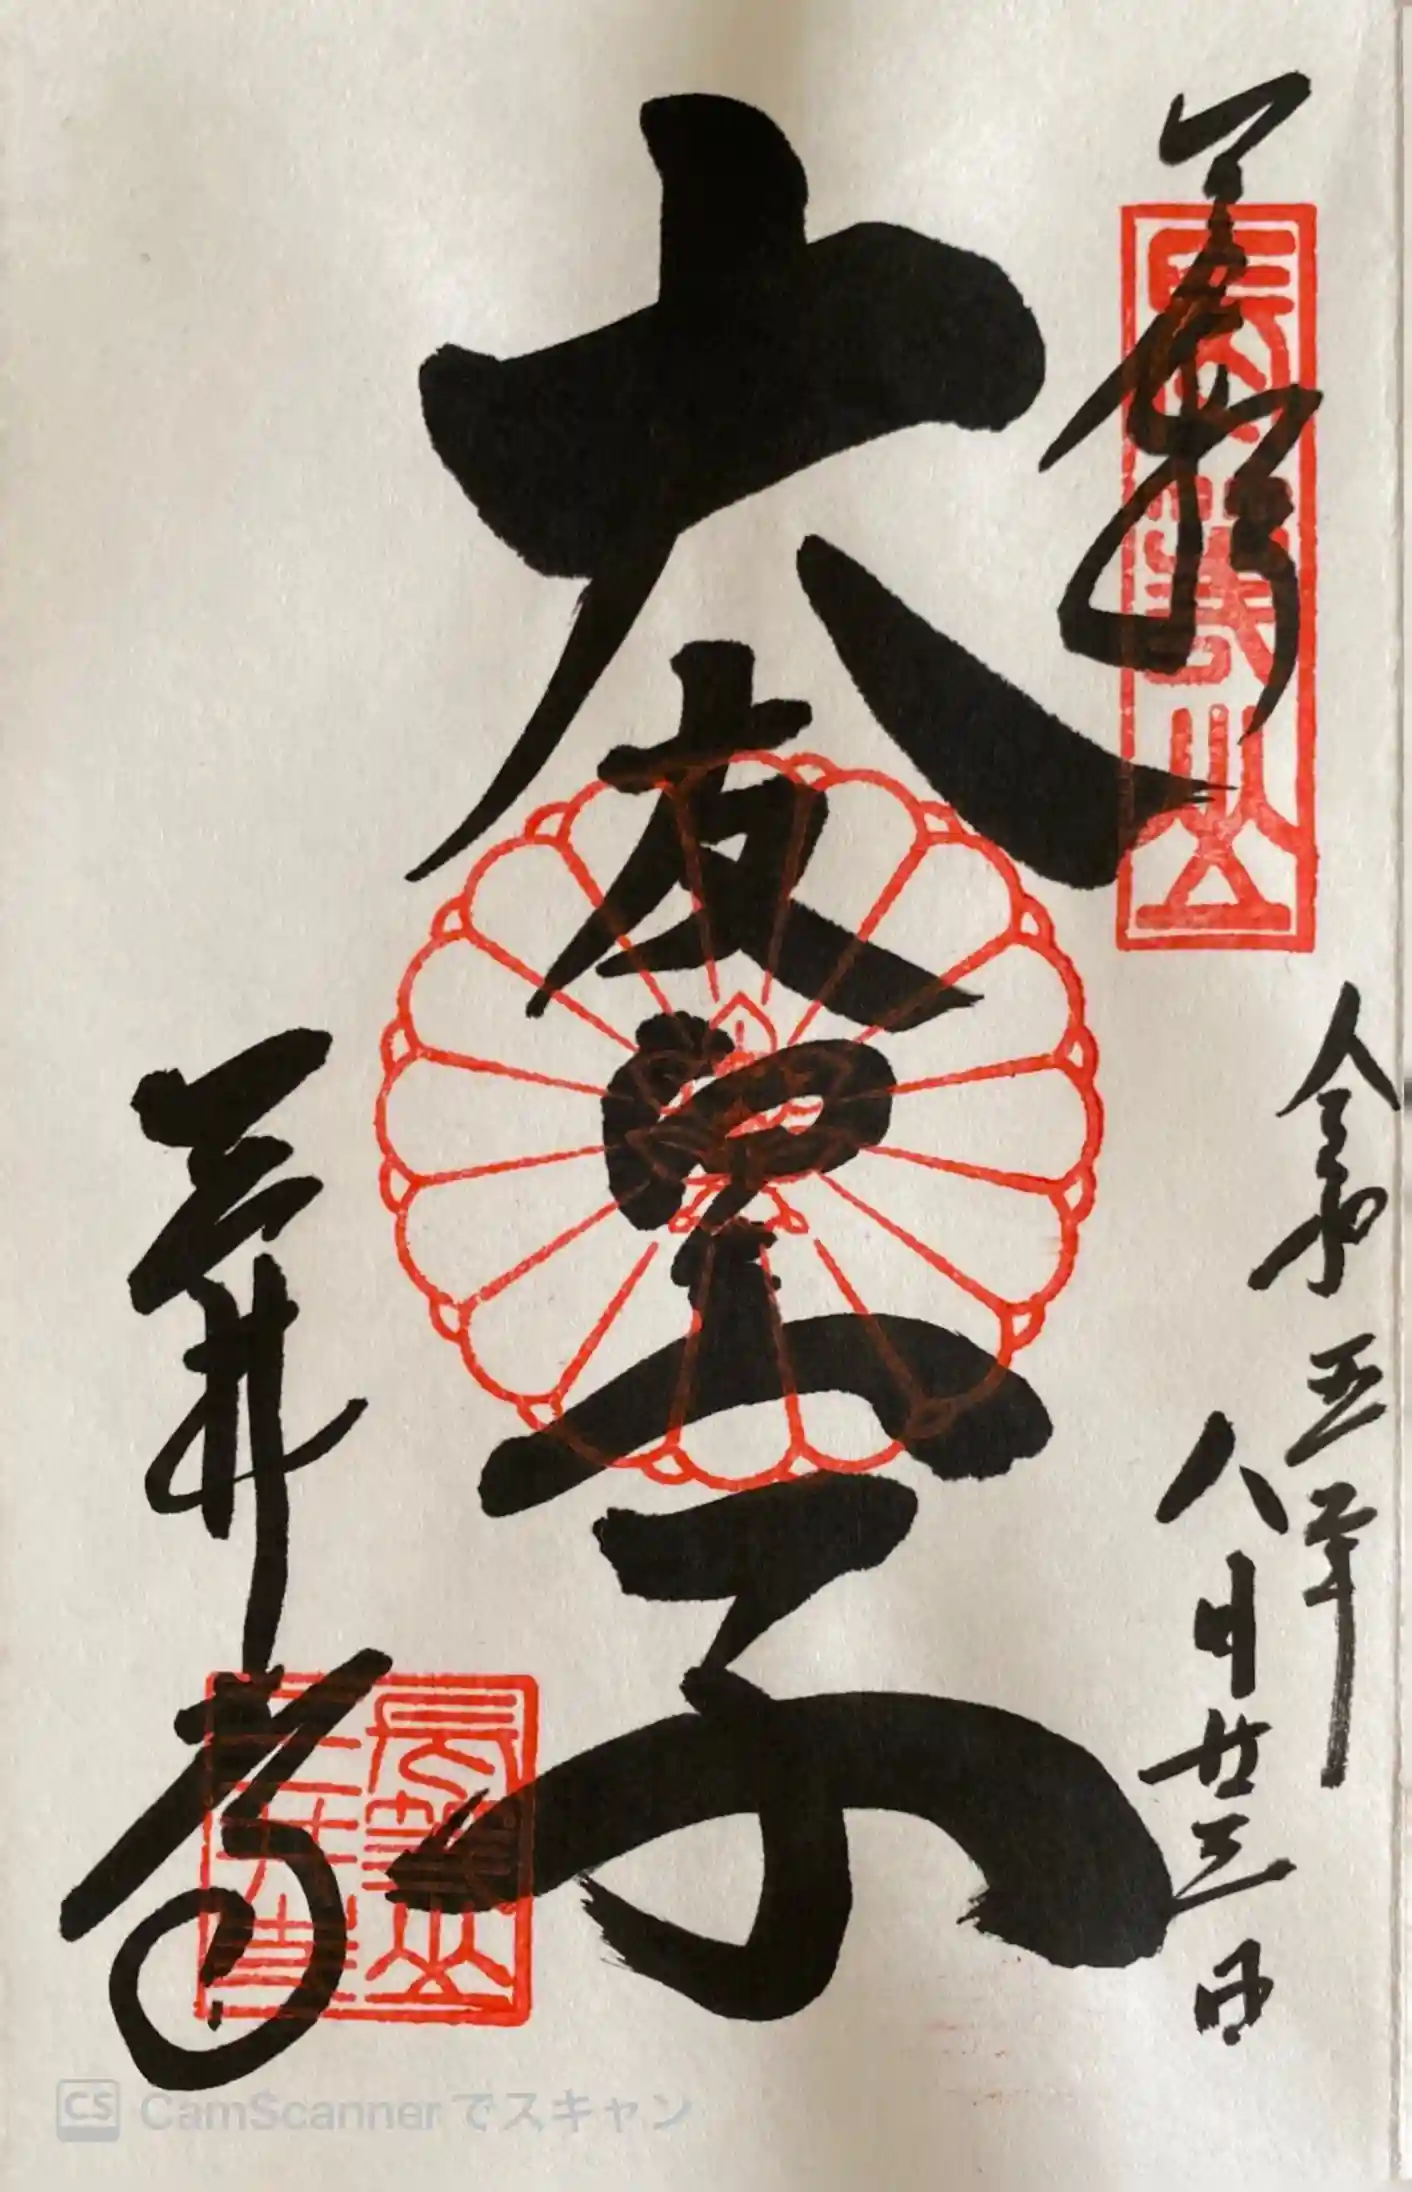 奉拝
長等山
令和五年
八月廿三日
大友皇子
三井寺
長等山
三井寺
CS CamScannerでスキャン